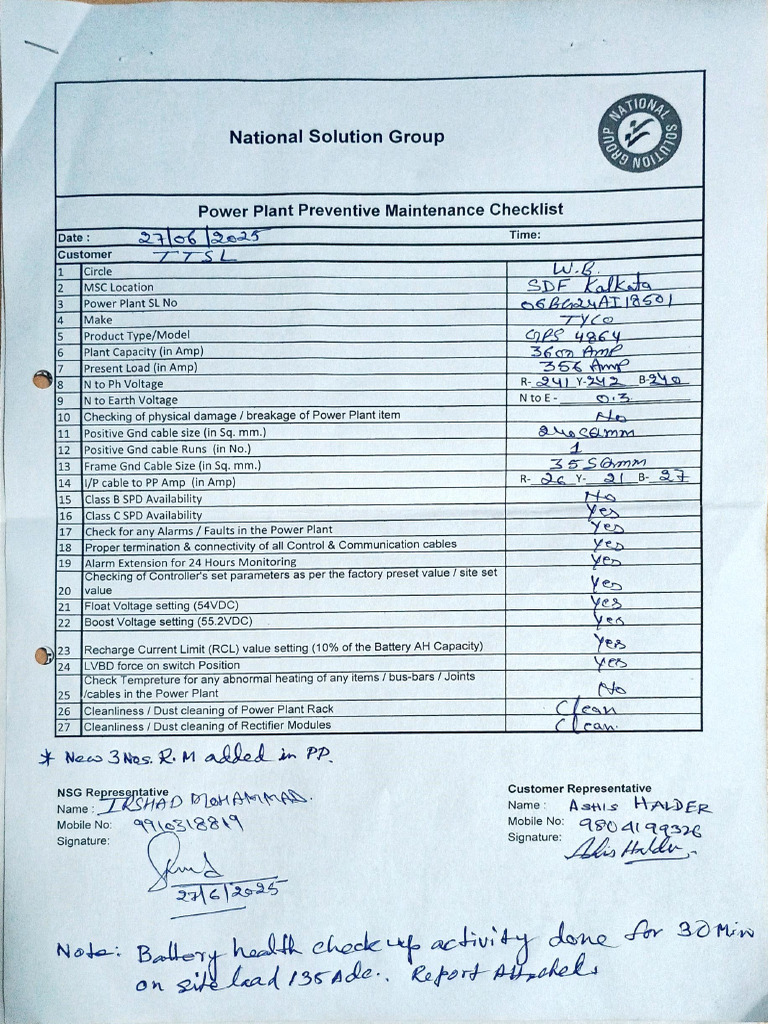 NATIONAL SOLUTION GROUP
National Solution Group
Power Plant Preventive Maintenance Checklist
Date : 27/06/2025 Time:
Customer TTSL
1 Circle W.B.
2 MSC Location SDF Kalkata
3 Power Plant SL No
4 Make TYCO
5 Product Type/Model GPS 4864
6 Plant Capacity (in Amp) 3600 Amp
7 Present Load (in Amp) 356 Amp
8 N to Ph Voltage R- 241 Y- 242 B- 240
9 N to Earth Voltage N to E - 0.3
10 Checking of physical damage / breakage of Power Plant item No
11 Positive Gnd cable size (in Sq. mm.) 240 Sqmm
12 Positive Gnd cable Runs (in No.) 1
13 Frame Gnd Cable Size (in Sq. mm.) 35 Sqmm
14 I/P cable to PP Amp (in Amp) R- 26 Y- 21 B- 27
15 Class B SPD Availability No
16 Class C SPD Availability Yes
17 Check for any Alarms / Faults in the Power Plant Yes
18 Proper termination & connectivity of all Control & Communication cables Yes
19 Alarm Extension for 24 Hours Monitoring Yes
Checking of Controller's set parameters as per the factory preset value / site set
20 value Yes
21 Float Voltage setting (54VDC) Yes
22 Boost Voltage setting (55.2VDC) Yes
23 Recharge Current Limit (RCL) value setting (10% of the Battery AH Capacity) Yes
24 LVBD force on switch Position Yes
Check Tempreture for any abnormal heating of any items / bus-bars / Joints
25 /cables in the Power Plant No
26 Cleanliness / Dust cleaning of Power Plant Rack Clean
27 Cleanliness / Dust cleaning of Rectifier Modules Clean.
* New 3 Nos. R.M added in PP.
NSG Representative Customer Representative
Name : IRSHAD MOHAMMAD. Name : ASHIS HALDER
Mobile No: 9910318819 Mobile No: 9804199326
Signature: Signature: Ashis Halder
27/6/2025
Note: Battery health check up activity done for 30 Min
on site load 135 Adc.. Report Attached